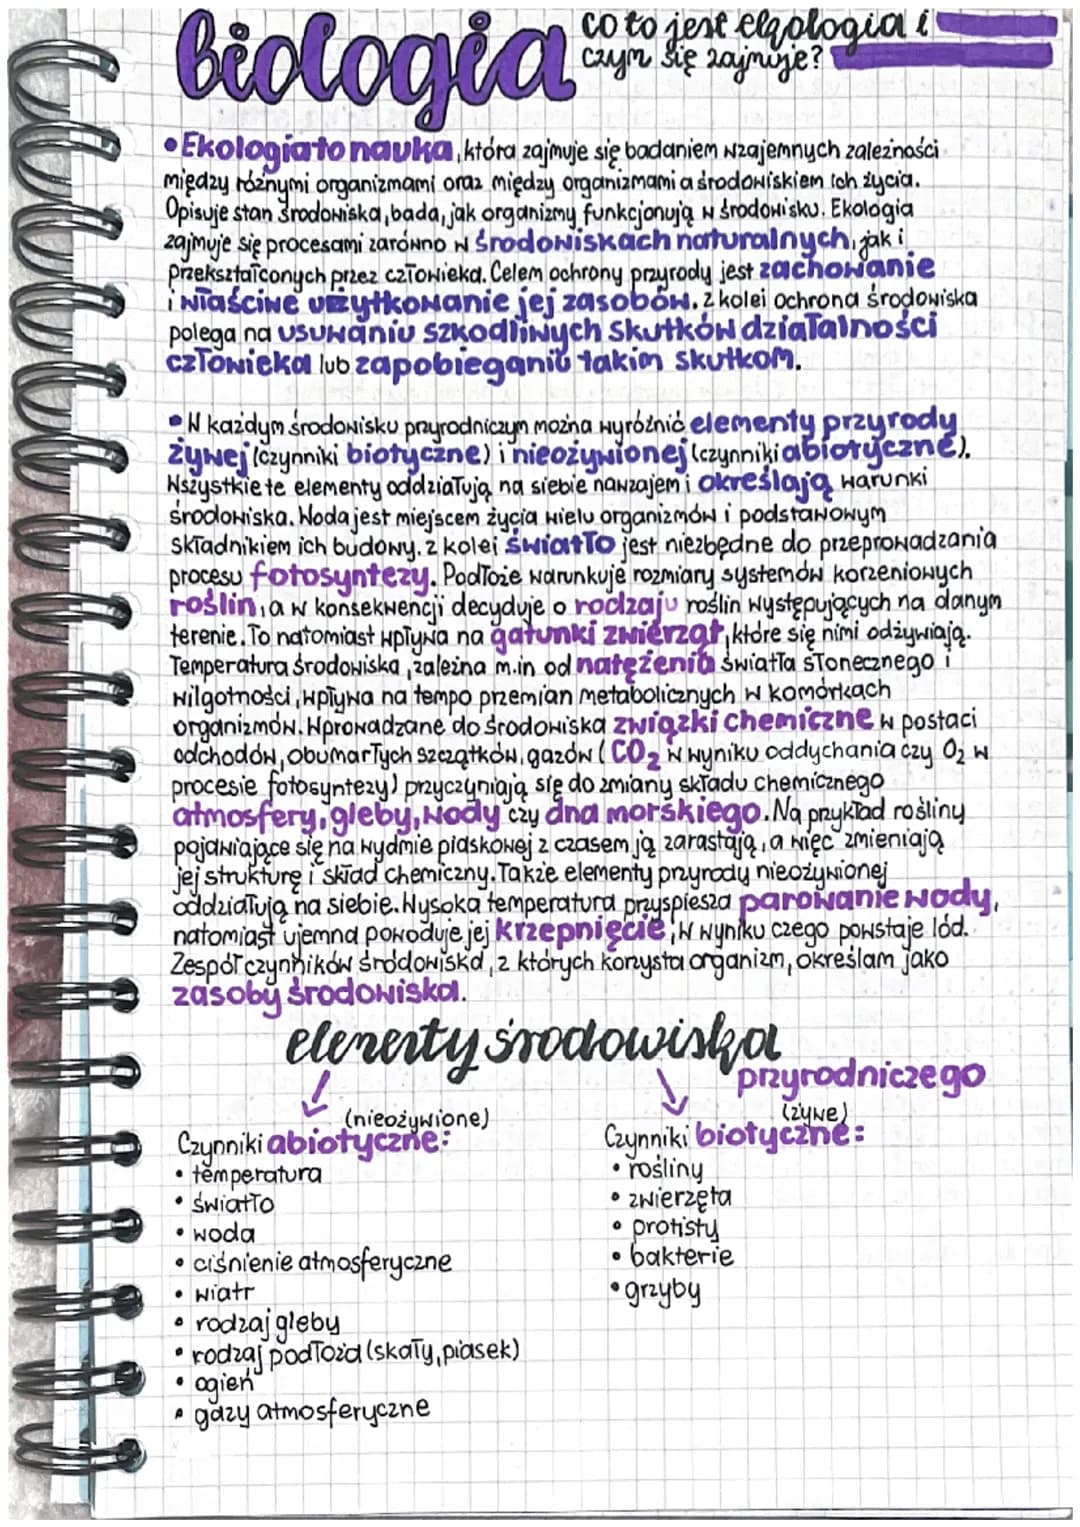 biologia
co to jest ekologia i
czym się zajmuje?
• Ekologia to nauka, która zajmuje się badaniem wzajemnych zależności
między różnymi organizmami oraz między organizmami a środowiskiem ich życia.
Opisuje stan środowiska, bada, jak organizmy funkcjonują w środowisku. Ekologia
zajmuje się procesami zarówno w środowiskach naturalnych, jak i
przekształconych przez człowieka. Celem ochrony przyrody jest zachowanie
i właściwe użytkowanie jej zasobów. z kolei ochrona środowiska
polega na usuwaniu szkodliwych skutków działalności
człowieka lub zapobieganiu takim skutkom.
• W każdym środowisku przyrodniczym można wyróżnić elementy przyrody
żywej (czynniki biotyczne) i nieożywionej (czynniki abiotyczne).
Wszystkie te elementy oddziałują na siebie nawzajem i określają warunki
środowiska. Woda jest miejscem życia wielu organizmów i podstawowym
składnikiem ich budowy. z kolei światło jest niezbędne do przeprowadzania
procesu fotosyntezy. Podłoże warunkuje rozmiary systemów korzeniowych
roślin, a w konsekwencji decyduje o rodzaju roślin występujących na danym
terenie. To natomiast wpływa na gatunki zwierząt, które się nimi odżywiają.
Temperatura środowiska, zależna m.in od natężenia światła słonecznego i
wilgotności, wpływa na tempo przemian metabolicznych w komórkach
organizmów. Wprowadzane do środowiska związki chemiczne w postaci
odchodów, obumarłych szczątków, gazów (CO₂ w wyniku oddychania czy O₂ w
procesie fotosyntezy) przyczyniają się do zmiany składu chemicznego
atmosfery, gleby, wody czy dna morskiego. Na przykład rośliny
pojawiające się na wydmie piaskowej z czasem ją zarastają, a więc zmieniają
jej strukturę i skład chemiczny. Także elementy przyrody nieożywionej
oddziałują na siebie. Wysoka temperatura przyspiesza parowanie wody,
natomiast ujemna powoduje jej krzepnięcie, w wyniku czego powstaje lód.
Zespół czynników środowiska, z których korzysta organizm, określam jako
zasoby środowiska.
elementy środowiska
przyrodniczego
(nieożywione)
Czynniki abiotyczne:
• temperatura
• światło
• woda
• ciśnienie atmosferyczne
• wiatr
• rodzaj gleby
• rodzaj podłoża (skały, piasek)
• ogień
• gazy atmosferyczne
(żywe)
Czynniki biotyczne:
• rośliny
• zwierzęta
• protisty
• bakterie
• grzyby